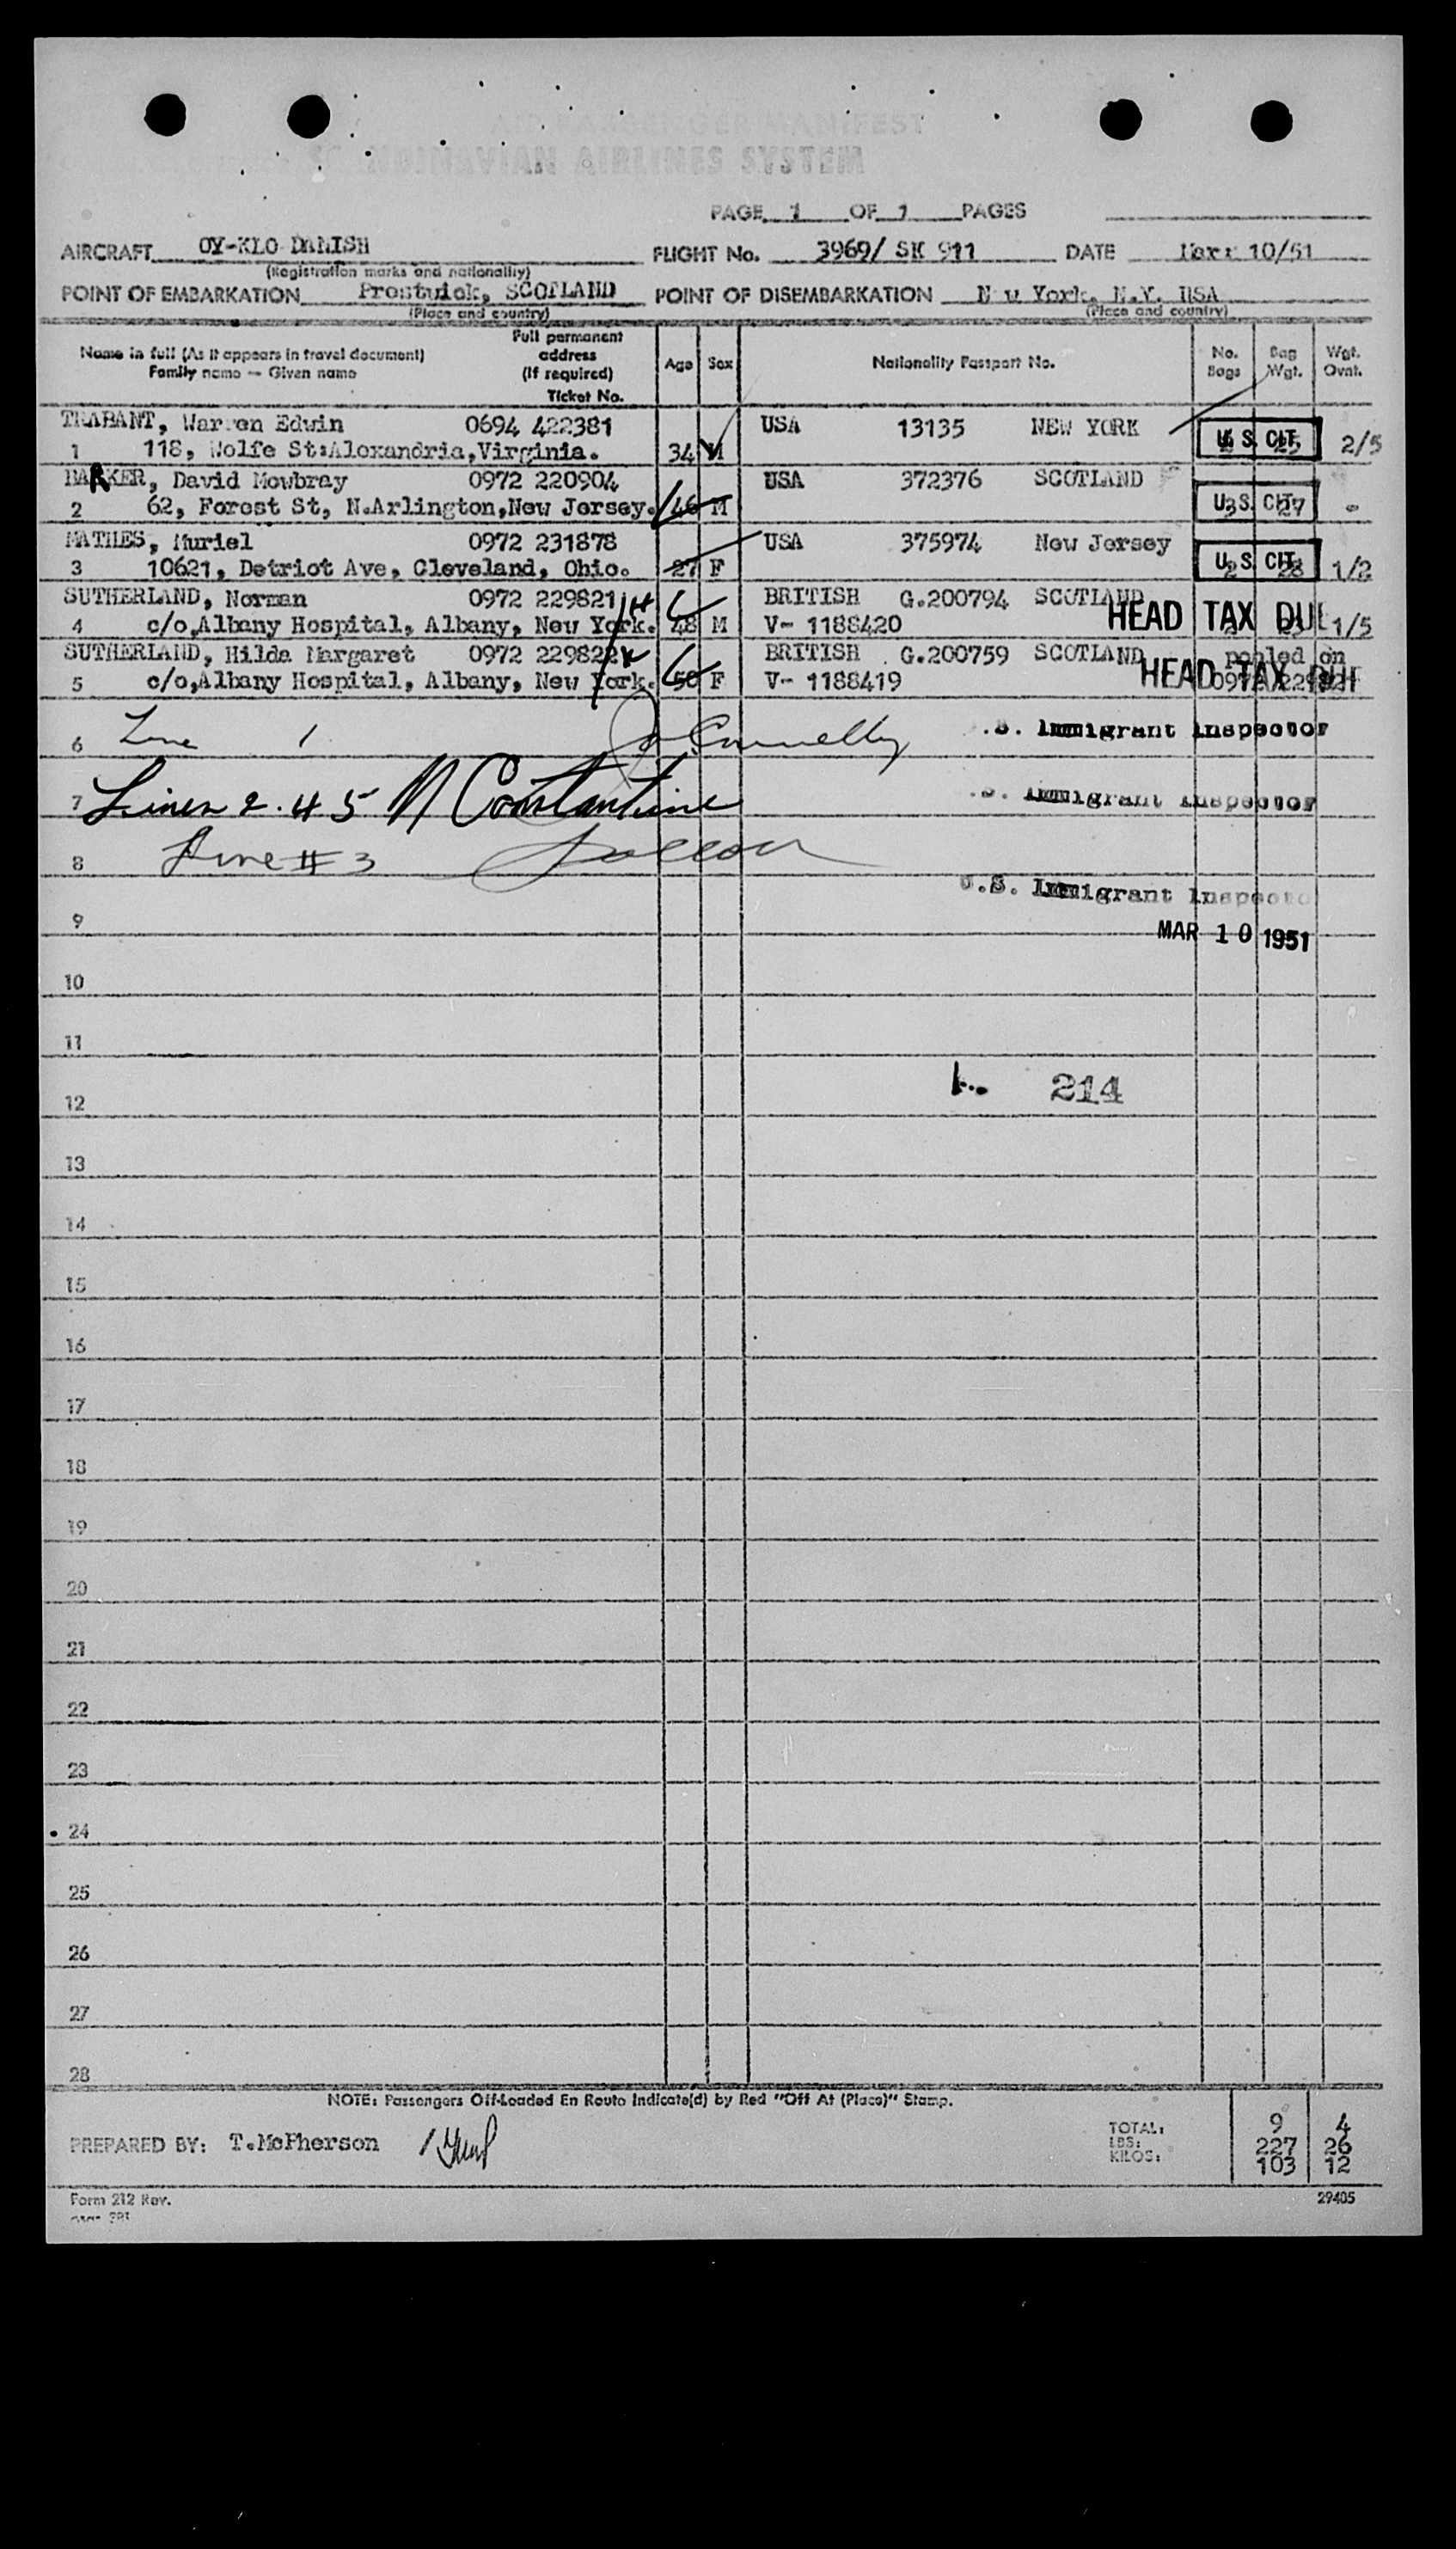 AIR PASSENGER MANIFEST
SCANDINAVIAN AIRLINES SYSTEM
PAGE 1 OF 1 PAGES
AIRCRAFT OY-KLO DANISH FLIGHT No. 3969/ SK 911 DATE Mar: 10/51
(Registration marks and nationality)
POINT OF EMBARKATION Prestwick, SCOTLAND POINT OF DISEMBARKATION N w York, N.Y. USA
(Place and country) (Place and country)
Name in full (As it appears in travel document) Family name — Given name Full permanent address (If required) Ticket No. Age Sex Nationality Passport No. No. Bags Bag Wgt. Wgt. Ovnt.
TRABANT, Warren Edwin 0694 422381 USA 13135 NEW YORK U.S. CIT.
1 118, Wolfe St:Alexandria,Virginia. 34 M 25 2/5
BARKER, David Mowbray 0972 220904 USA 372376 SCOTLAND
2 62, Forest St, N.Arlington,New Jersey. 46 M U.S. CIT. 3 27 -
MATHES, Muriel 0972 231878 USA 375974 New Jersey
3 10621, Detriot Ave, Cleveland, Ohio. 27 F U.S. CIT. 2 28 1/2
SUTHERLAND, Norman 0972 229821 BRITISH G.200794 SCOTLAND
4 c/o,Albany Hospital, Albany, New York. 48 M V- 1188420 HEAD TAX DUE 1/5
SUTHERLAND, Hilda Margaret 0972 229822 BRITISH G.200759 SCOTLAND pooled on
5 c/o,Albany Hospital, Albany, New York. 50 F V- 1188419 HEAD TAX 0972
6 Line 1 J Connelly .S. Immigrant Inspector
7 Lines 2. 4 5 N Constantine .S. Immigrant Inspector
8 Line # 3
U.S. Immigrant Inspecto
9 MAR 10 1951
10
11
12 214
13
14
15
16
17
18
19
20
21
22
23
24
25
26
27
28
NOTE: Passengers Off-Loaded En Route Indicate(d) by Red "Off At (Place)" Stamp.
PREPARED BY: T.McPherson
TOTAL: 9 4
LBS: 227 26
KILOS: 103 12
Form 212 Rev. 29405